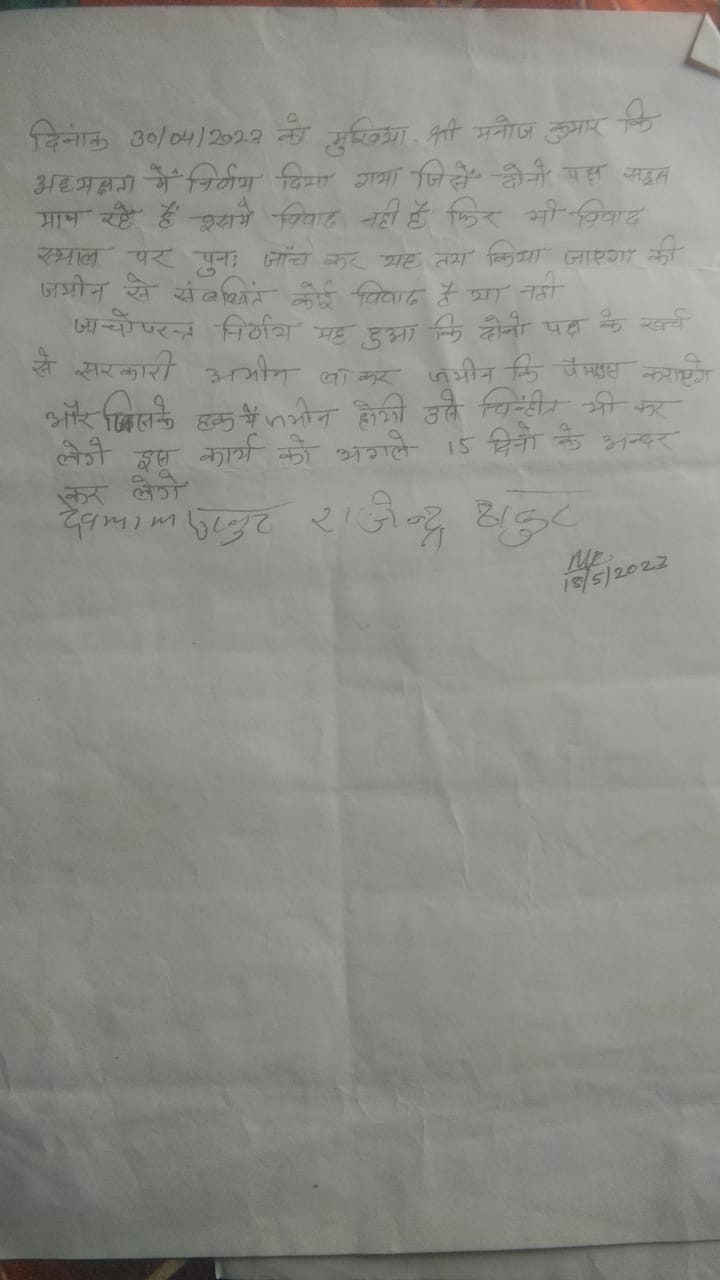 दिनांक 30/04/2023 को मुखिया श्री मनोज कुमार कि
अध्यक्षता में निर्णय दिया गया जिसे दोनो पक्ष सहज
मान रहे हैं इसमे विवाद नही है फिर भी विवाद
स्थाल पर पुनः जाँच कर यह तय किया जाएगा की
जमीन से संबंधित कोई विवाद है या नही
जाचोपरन्त निर्णय यह हुआ कि दोनो पक्ष के खर्च
से सरकारी अमीन ला कर जमीन कि कराएगे
और जिसके हक में जमीन होगी उसे चिन्हीत भी कर
लेगे इस कार्य को अगले 15 दिनो के अन्दर
कर लेगे
ठाकुर राजेन्द्र ठाकुर
18/5/2023